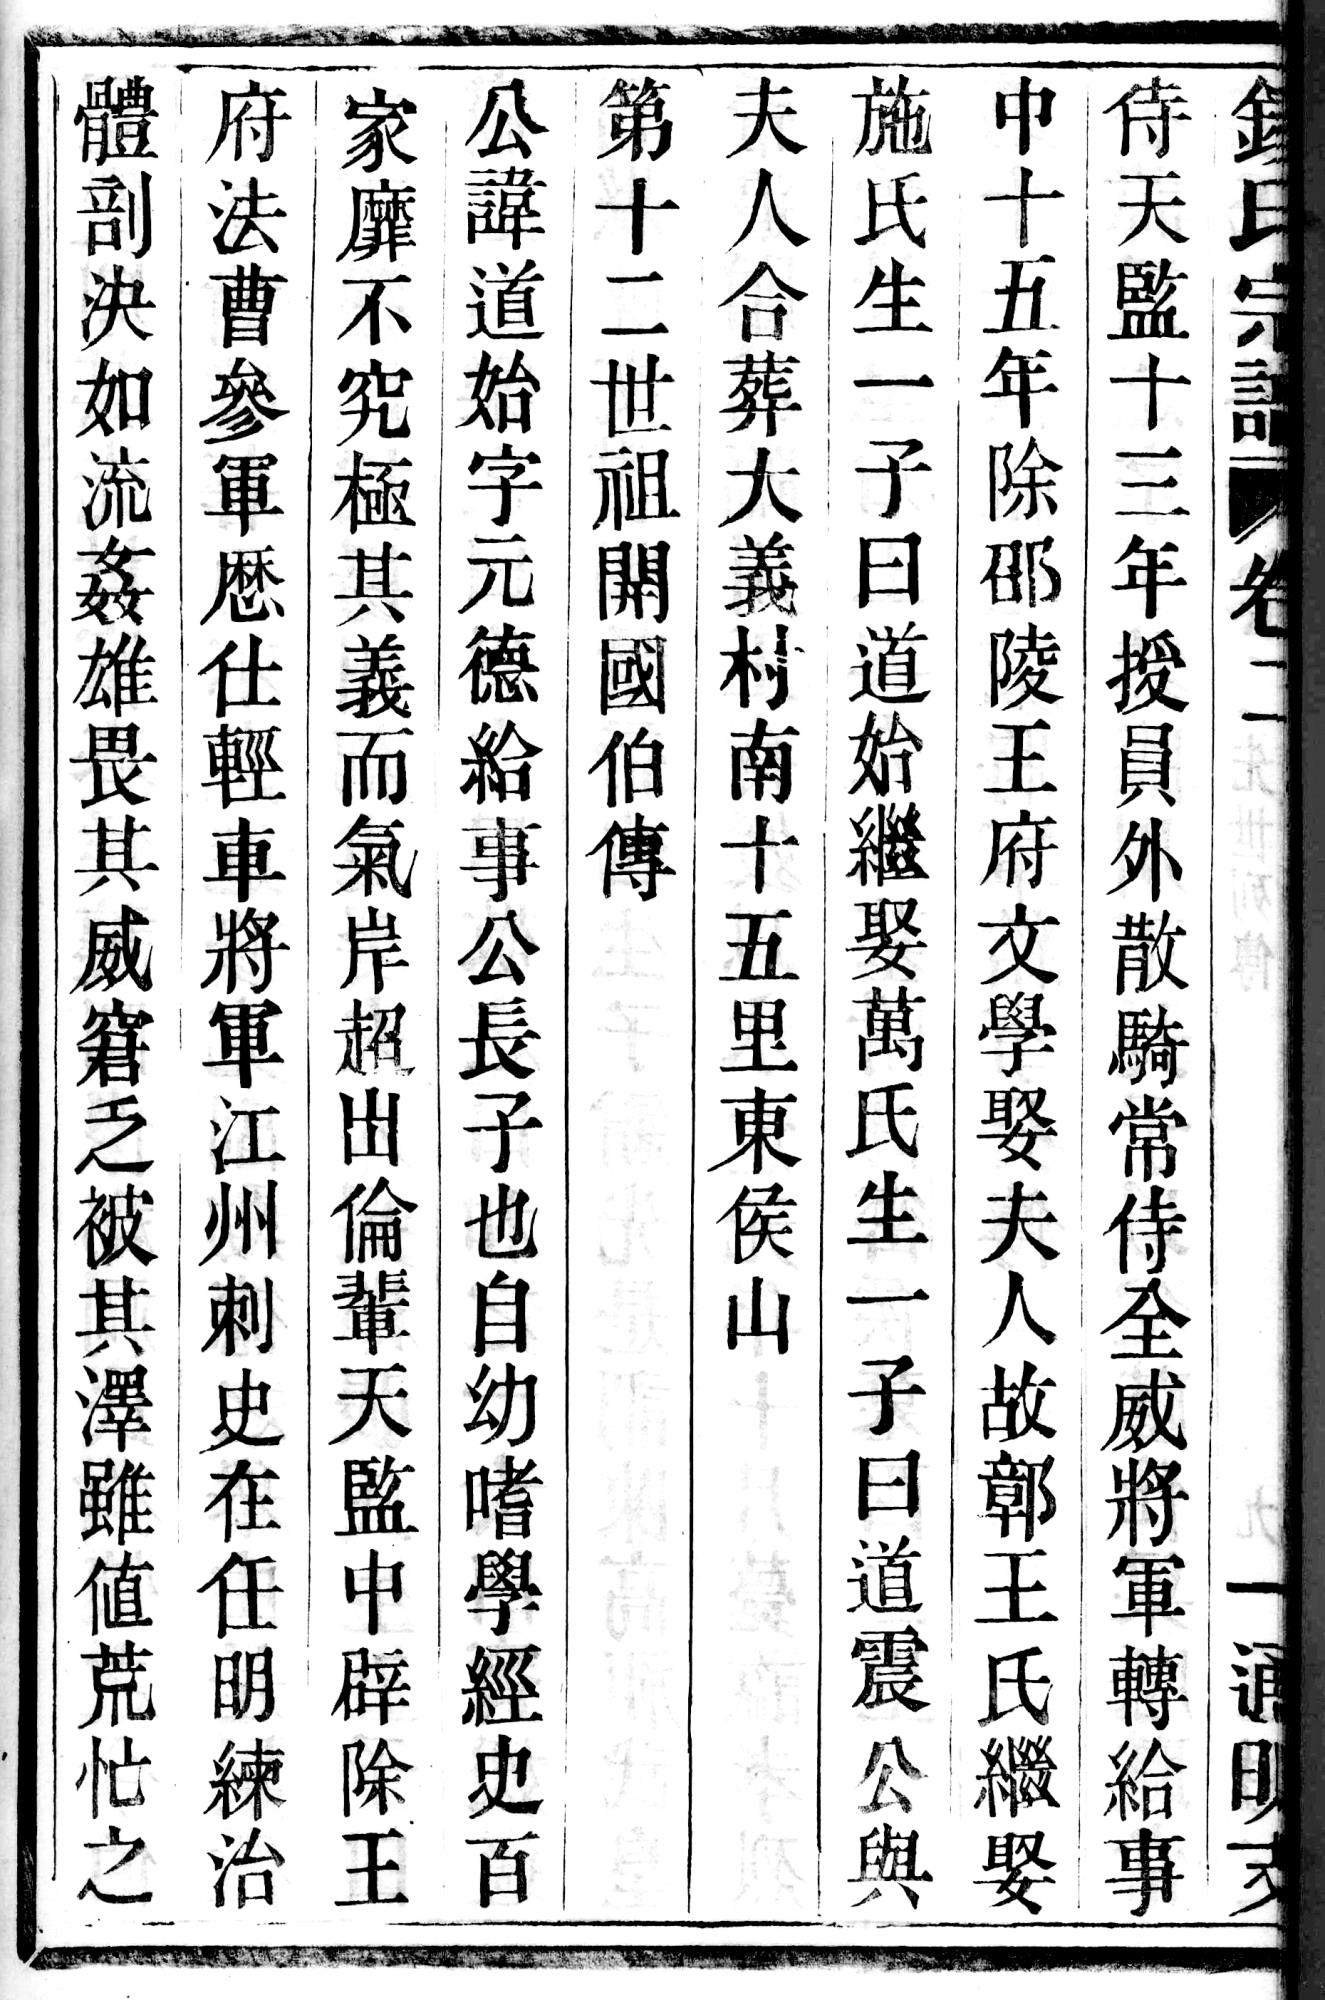 錢氏宗譜 卷二
侍天監十三年授員外散騎常侍全威將軍轉給事
中十五年除邵陵王府文學娶夫人故鄣王氏繼娶
施氏生一子曰道始繼娶萬氏生一子曰道震公與
夫人合葬大義村南十五里東侯山
第十二世祖開國伯傳
公諱道始字元德給事公長子也自幼嗜學經史百
家靡不究極其義而氣岸超出倫輩天監中辟除王
府法曹參軍歷仕輕車將軍江州刺史在任明練治
體剖決如流姦雄畏其威窘乏被其澤雖值荒忙之